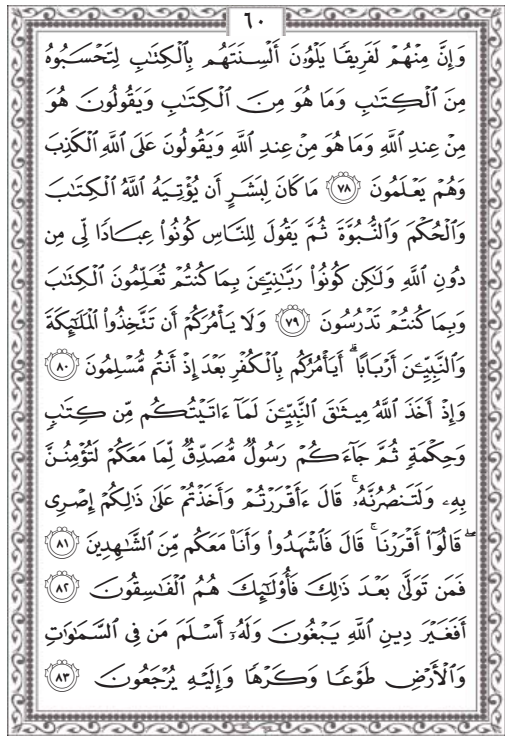 ٦٠
وَإِنَّ مِنْهُمْ لَفَرِيقًا يَلْوُۥنَ أَلْسِنَتَهُم بِالْكِتَٰبِ لِتَحْسَبُوهُ
مِنَ الْكِتَٰبِ وَمَا هُوَ مِنَ الْكِتَٰبِ وَيَقُولُونَ هُوَ
مِنْ عِندِ اللَّهِ وَمَا هُوَ مِنْ عِندِ اللَّهِ وَيَقُولُونَ عَلَى اللَّهِ الْكَذِبَ
وَهُمْ يَعْلَمُونَ ٧٨ مَا كَانَ لِبَشَرٍ أَن يُؤْتِيَهُ اللَّهُ الْكِتَٰبَ
وَالْحُكْمَ وَالنُّبُوَّةَ ثُمَّ يَقُولَ لِلنَّاسِ كُونُوا۟ عِبَادًا لِّى مِن
دُونِ اللَّهِ وَلَٰكِن كُونُوا۟ رَبَّٰنِيِّۦنَ بِمَا كُنتُمْ تُعَلِّمُونَ الْكِتَٰبَ
وَبِمَا كُنتُمْ تَدْرُسُونَ ٧٩ وَلَا يَأْمُرَكُمْ أَن تَتَّخِذُوا۟ الْمَلَٰٓئِكَةَ
وَالنَّبِيِّۦنَ أَرْبَابًا ۗ أَيَأْمُرُكُم بِالْكُفْرِ بَعْدَ إِذْ أَنتُم مُّسْلِمُونَ ٨٠
وَإِذْ أَخَذَ اللَّهُ مِيثَٰقَ النَّبِيِّۦنَ لَمَآ ءَاتَيْتُكُم مِّن كِتَٰبٍ
وَحِكْمَةٍ ثُمَّ جَآءَكُمْ رَسُولٌ مُّصَدِّقٌ لِّمَا مَعَكُمْ لَتُؤْمِنُنَّ
بِهِۦ وَلَتَنصُرُنَّهُۥ ۚ قَالَ ءَأَقْرَرْتُمْ وَأَخَذْتُمْ عَلَىٰ ذَٰلِكُمْ إِصْرِى
ۖ قَالُوٓا۟ أَقْرَرْنَا ۚ قَالَ فَاشْهَدُوا۟ وَأَنَا۠ مَعَكُم مِّنَ الشَّٰهِدِينَ ٨١
فَمَن تَوَلَّىٰ بَعْدَ ذَٰلِكَ فَأُو۟لَٰٓئِكَ هُمُ الْفَٰسِقُونَ ٨٢
أَفَغَيْرَ دِينِ اللَّهِ يَبْغُونَ وَلَهُۥٓ أَسْلَمَ مَن فِى السَّمَٰوَٰتِ
وَالْأَرْضِ طَوْعًا وَكَرْهًا وَإِلَيْهِ يُرْجَعُونَ ٨٣